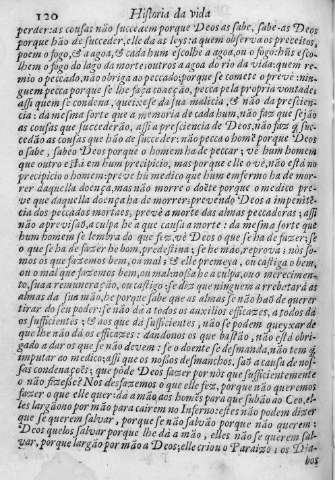 120 Historia da vida
perder: as cousas não succedem porque Deos as sabe, sabe-as Deos
porque hão de succeder, elle dá as leys: a quem observa os preceitos,
poem o fogo, & a agoa, & cada hum escolhe a agoa, ou o fogo: hũs esco-
lhem o fogo do lago da morte: outros a agoa do rio da vida: quem re-
mio o peccado, não obriga ao peccado: porque se comete o prevè: nin-
guem pecca porque se lhe faça coacção, pecca pela propria vontade:
assi quem se condena, queixese da sua malicia, & não da prescien-
cia: da mesma sorte que a memoria de cada hum, não faz que sejão
as cousas que succederão, assi a presciencia de Deos, não faz q̃ suc-
cedão as cousas que hão de succeder: não pecca o homẽ porque Deos
o sabe, sabeo Deos porque o homem ha de peccar; vè hum homem
que outro està em hum precipicio, mas porque elle o vè, não està no
precipicio o homem: prevè hũ medico que hum enfermo ha de mor-
rer daquella doença, mas não morre o doẽte porque o medico pre-
ve que daquella doença ha de morrer: prevendo Deos a impenitẽ-
cia dos peccados mortaes, prevè a morte das almas peccadoras; assi
não a previsaõ, a culpa he a que causa a morte: da mesma sorte que
hum homem se lembra do que fez, vè Deos o que se ha de fazer; se
o que se ha de fazer he bom, predestina; se he mào, reprova: nòs so-
mos os que fazemos bem, ou mal; & elle premeya, ou castiga o bem,
ou o mal que fazemos bem, ou mal: nossa he a culpa, ou o merecimen-
to, sua a remuneração, ou castigo: se diz que ninguem arrebatarà as
almas da sua mão, he porque sabe que as almas se não haõ de querer
tirar do seu poder: se não dà a todos os auxilios efficazes, a todos dà
os sufficientes; & aos que dà sufficientes, não se podem queyxar de
que lhe não dà os efficazes: dandonos os que bastão, não està obri-
gado a dar os que se não devem: se o doente se desmanda, não tem q̃
imputar ao medico; assi que os nossos desmanchos, saõ a causa de nos-
sas condenações; que pòde Deos fazer por nòs que sufficientemente
o não fizesse? Nòs desfazemos o que elle fez, porque não queremos
fazer o que elle quer: da a mão aos homẽs para que subão ao Ceo, el-
les largãono por mão para cairem no Inferno: estes não podem dizer
que se querem salvar, porque se não salvão porque não querem:
Deos quelos salvar porque lhe dà a mão, elles não se querem sal-
var, porque largão por mão a Deos; elle criou o Paraizo: os Dia-
bos